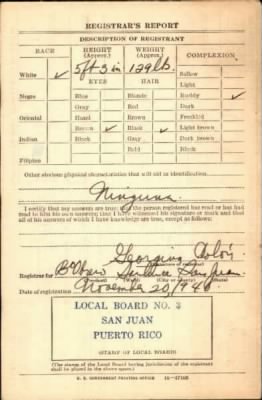 REGISTRAR'S REPORT
DESCRIPTION OF REGISTRANT
RACE HEIGHT (Approx.) WEIGHT (Approx.) COMPLEXION
White ✓ 5 ft 3 in 129 lb. Sallow
EYES HAIR Light
Negro Blue Blonde Ruddy ✓
Gray Red Dark
Oriental Hazel Brown Freckled
Brown ✓ Black ✓ Light brown
Indian Black Gray Dark brown
Bald Black
Filipino
Other obvious physical characteristics that will aid in identification
Ninguna
I certify that my answers are true; that the person registered has read or has had
read to him his own answers; that I have witnessed his signature or mark and that
all of his answers of which I have knowledge are true, except as follows:
Georgina Colón
Registrar for San Juan
Date of registration November 20/1940
LOCAL BOARD NO. 3
SAN JUAN
PUERTO RICO
(STAMP OF LOCAL BOARD)
(The stamp of the Local Board having jurisdiction of the registrant
shall be placed in the above space.)
U. S. GOVERNMENT PRINTING OFFICE